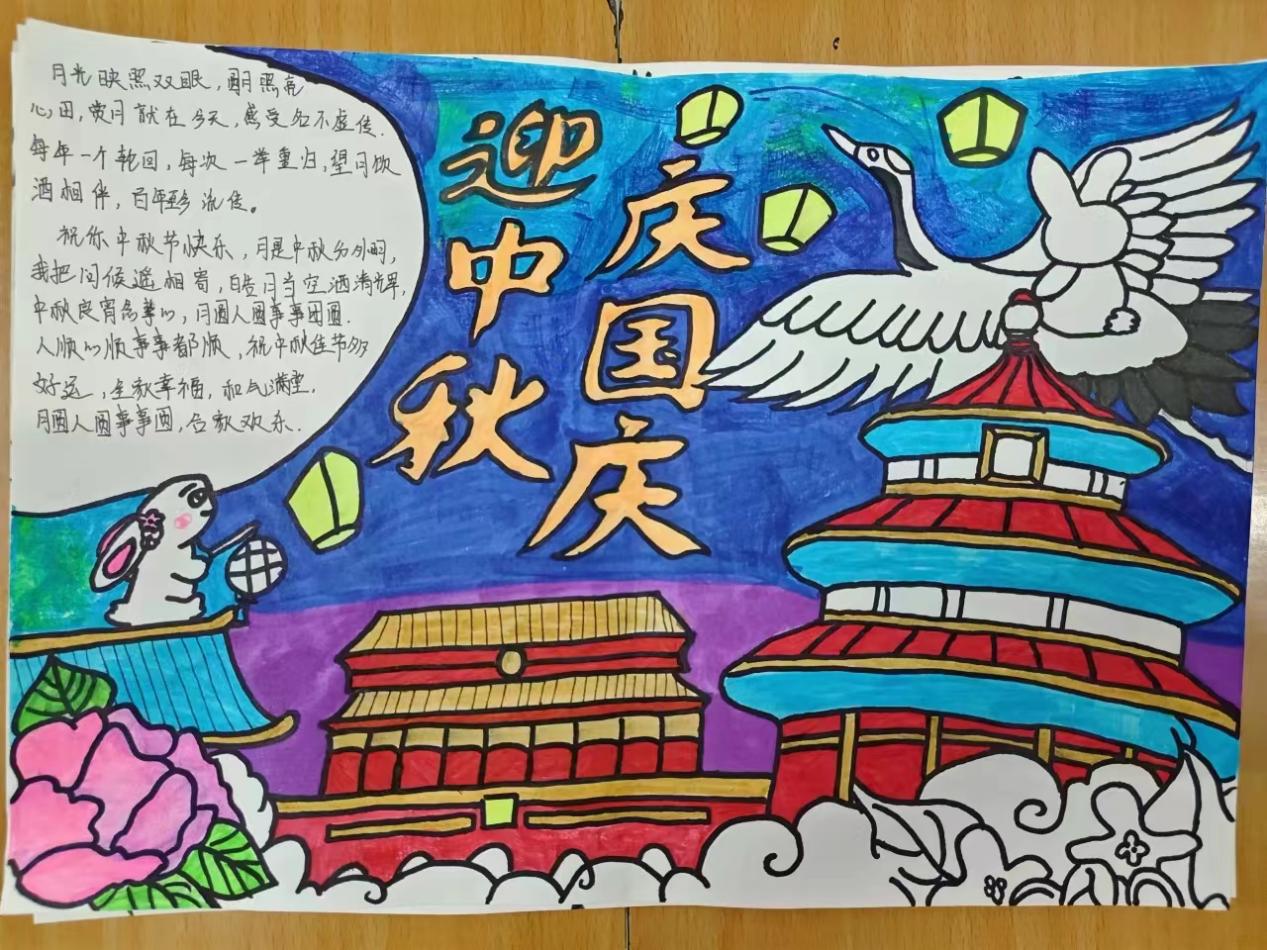 月光映照双眼，月照亮
心田，赏月就在今天，感受名不虚传．
每年一个轮回，每次一举重归，望月饮
酒相伴，百年流传。
祝你中秋节快乐，月是中秋分外明，
我把问候遥相寄，皓月当空洒清辉，
中秋良宵念挚心，月圆人圆事事团圆．
人顺心顺事事都顺，祝中秋佳节多
好运，全家幸福，和气满堂．
月圆人圆事事圆，合家欢乐．
迎中秋
庆国庆